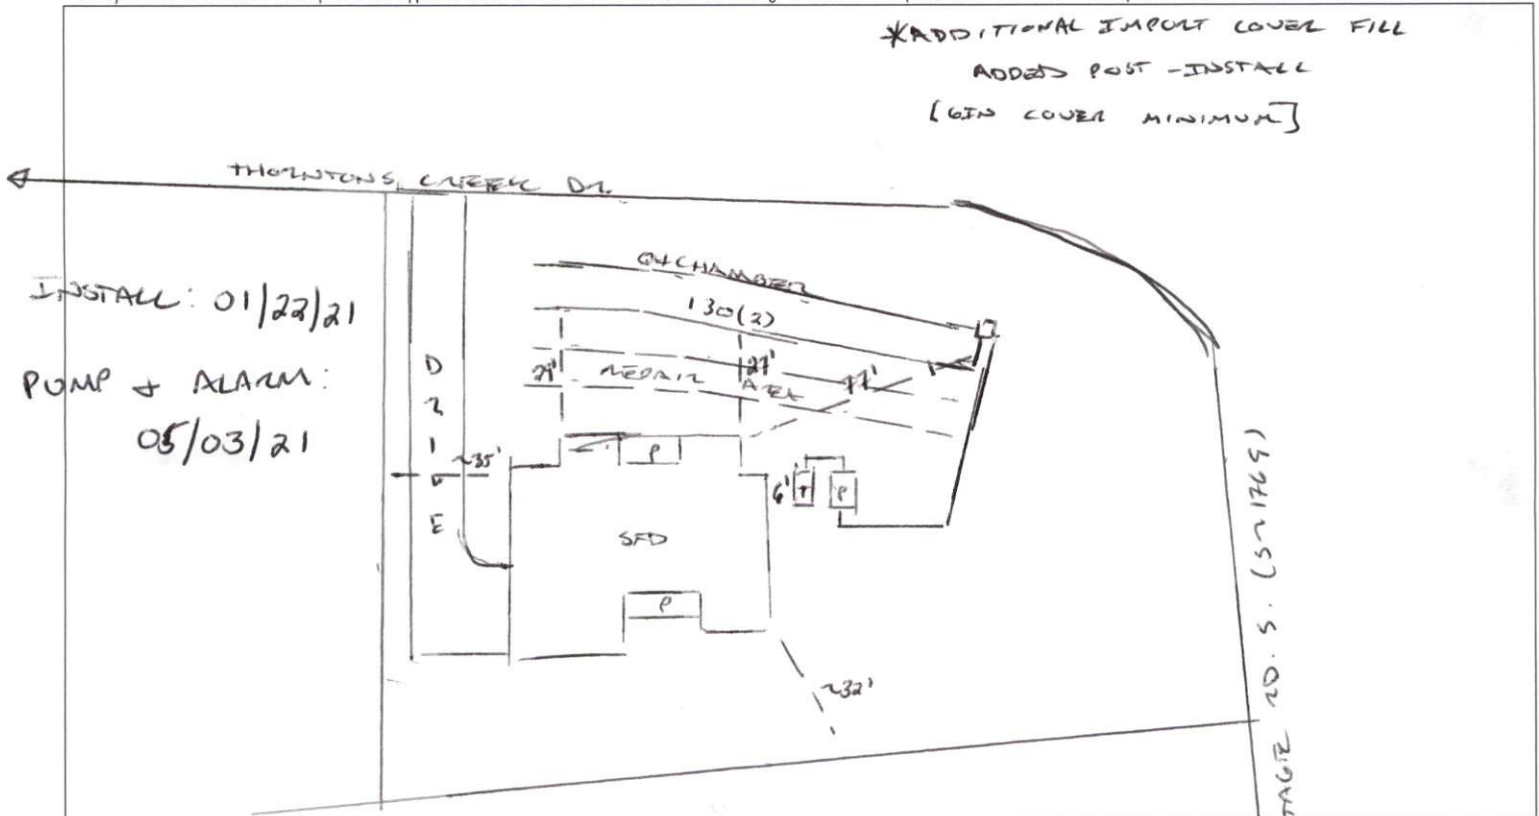 *ADDITIONAL IMPORT COVER FILL
ADDED POST-INSTALL
[6IN COVER MINIMUM]
THORNTONS CREEK DR.
INSTALL: 01/22/21
PUMP & ALARM:
05/03/21
Q4 CHAMBER
130(2)
DRIVE
29'
REPAIR AREA
27'
~35'
P
6'
T
P
SFD
P
~32'
RD. S. (SR1769)